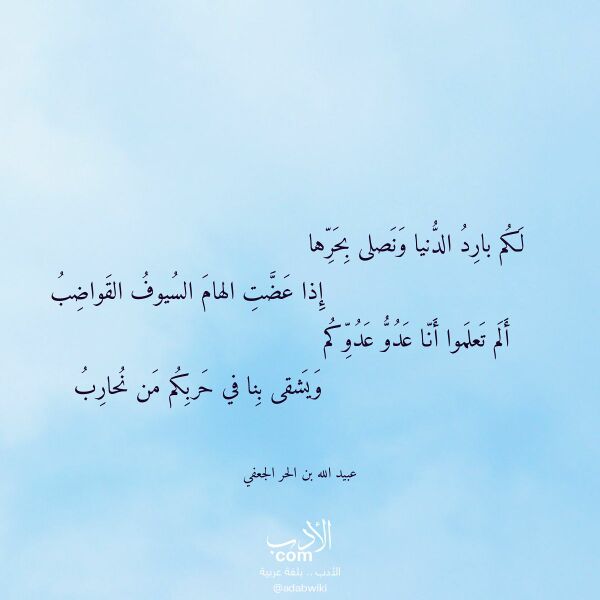 لَكُم بارِدُ الدُّنيا وَنَصلى بِحَرِّها
إِذا عَضَّتِ الهامَ السُيوفُ القَواضِبُ
أَلَم تَعلَموا أَنّا عَدُوُّ عَدُوِّكُم
وَيَشقى بِنا في حَربِكُم مَن نُحارِبُ
عبيد الله بن الحر الجعفي
الأدب
com
الأدب .. بلغة عربية
@adabwiki